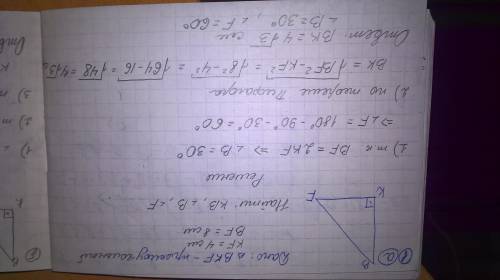 1 а
K
F
B
Дано: △ BKF - прямоугольный
KF = 4 см
BF = 8 см
Найти: KB, ∠B, ∠F
Решение
1) т.к BF = 2KF ⇒ ∠B = 30°
⇒ ∠F = 180° - 90° - 30° = 60°
2) по теореме Пифагора
BK = √BF² - KF² = √8² - 4² = √64 - 16 = √48 = 4√3
Ответ: BK = 4√3 см
∠B = 30°, ∠F = 60°